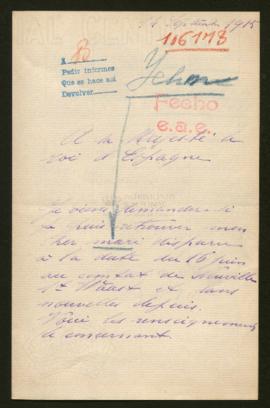 Septembre 1915
116178
A
Pedir informes
Que se hace así
Devolver
Fecho
e.a.e.
A sa Majesté le
Roi d'Espagne
Je viens demander si
je puis retrouver mon
cher mari disparu
à la date du 16 juin
au combat de Neuville
St Waast et sans
nouvelles depuis.
Voici les renseignements
le concernant.